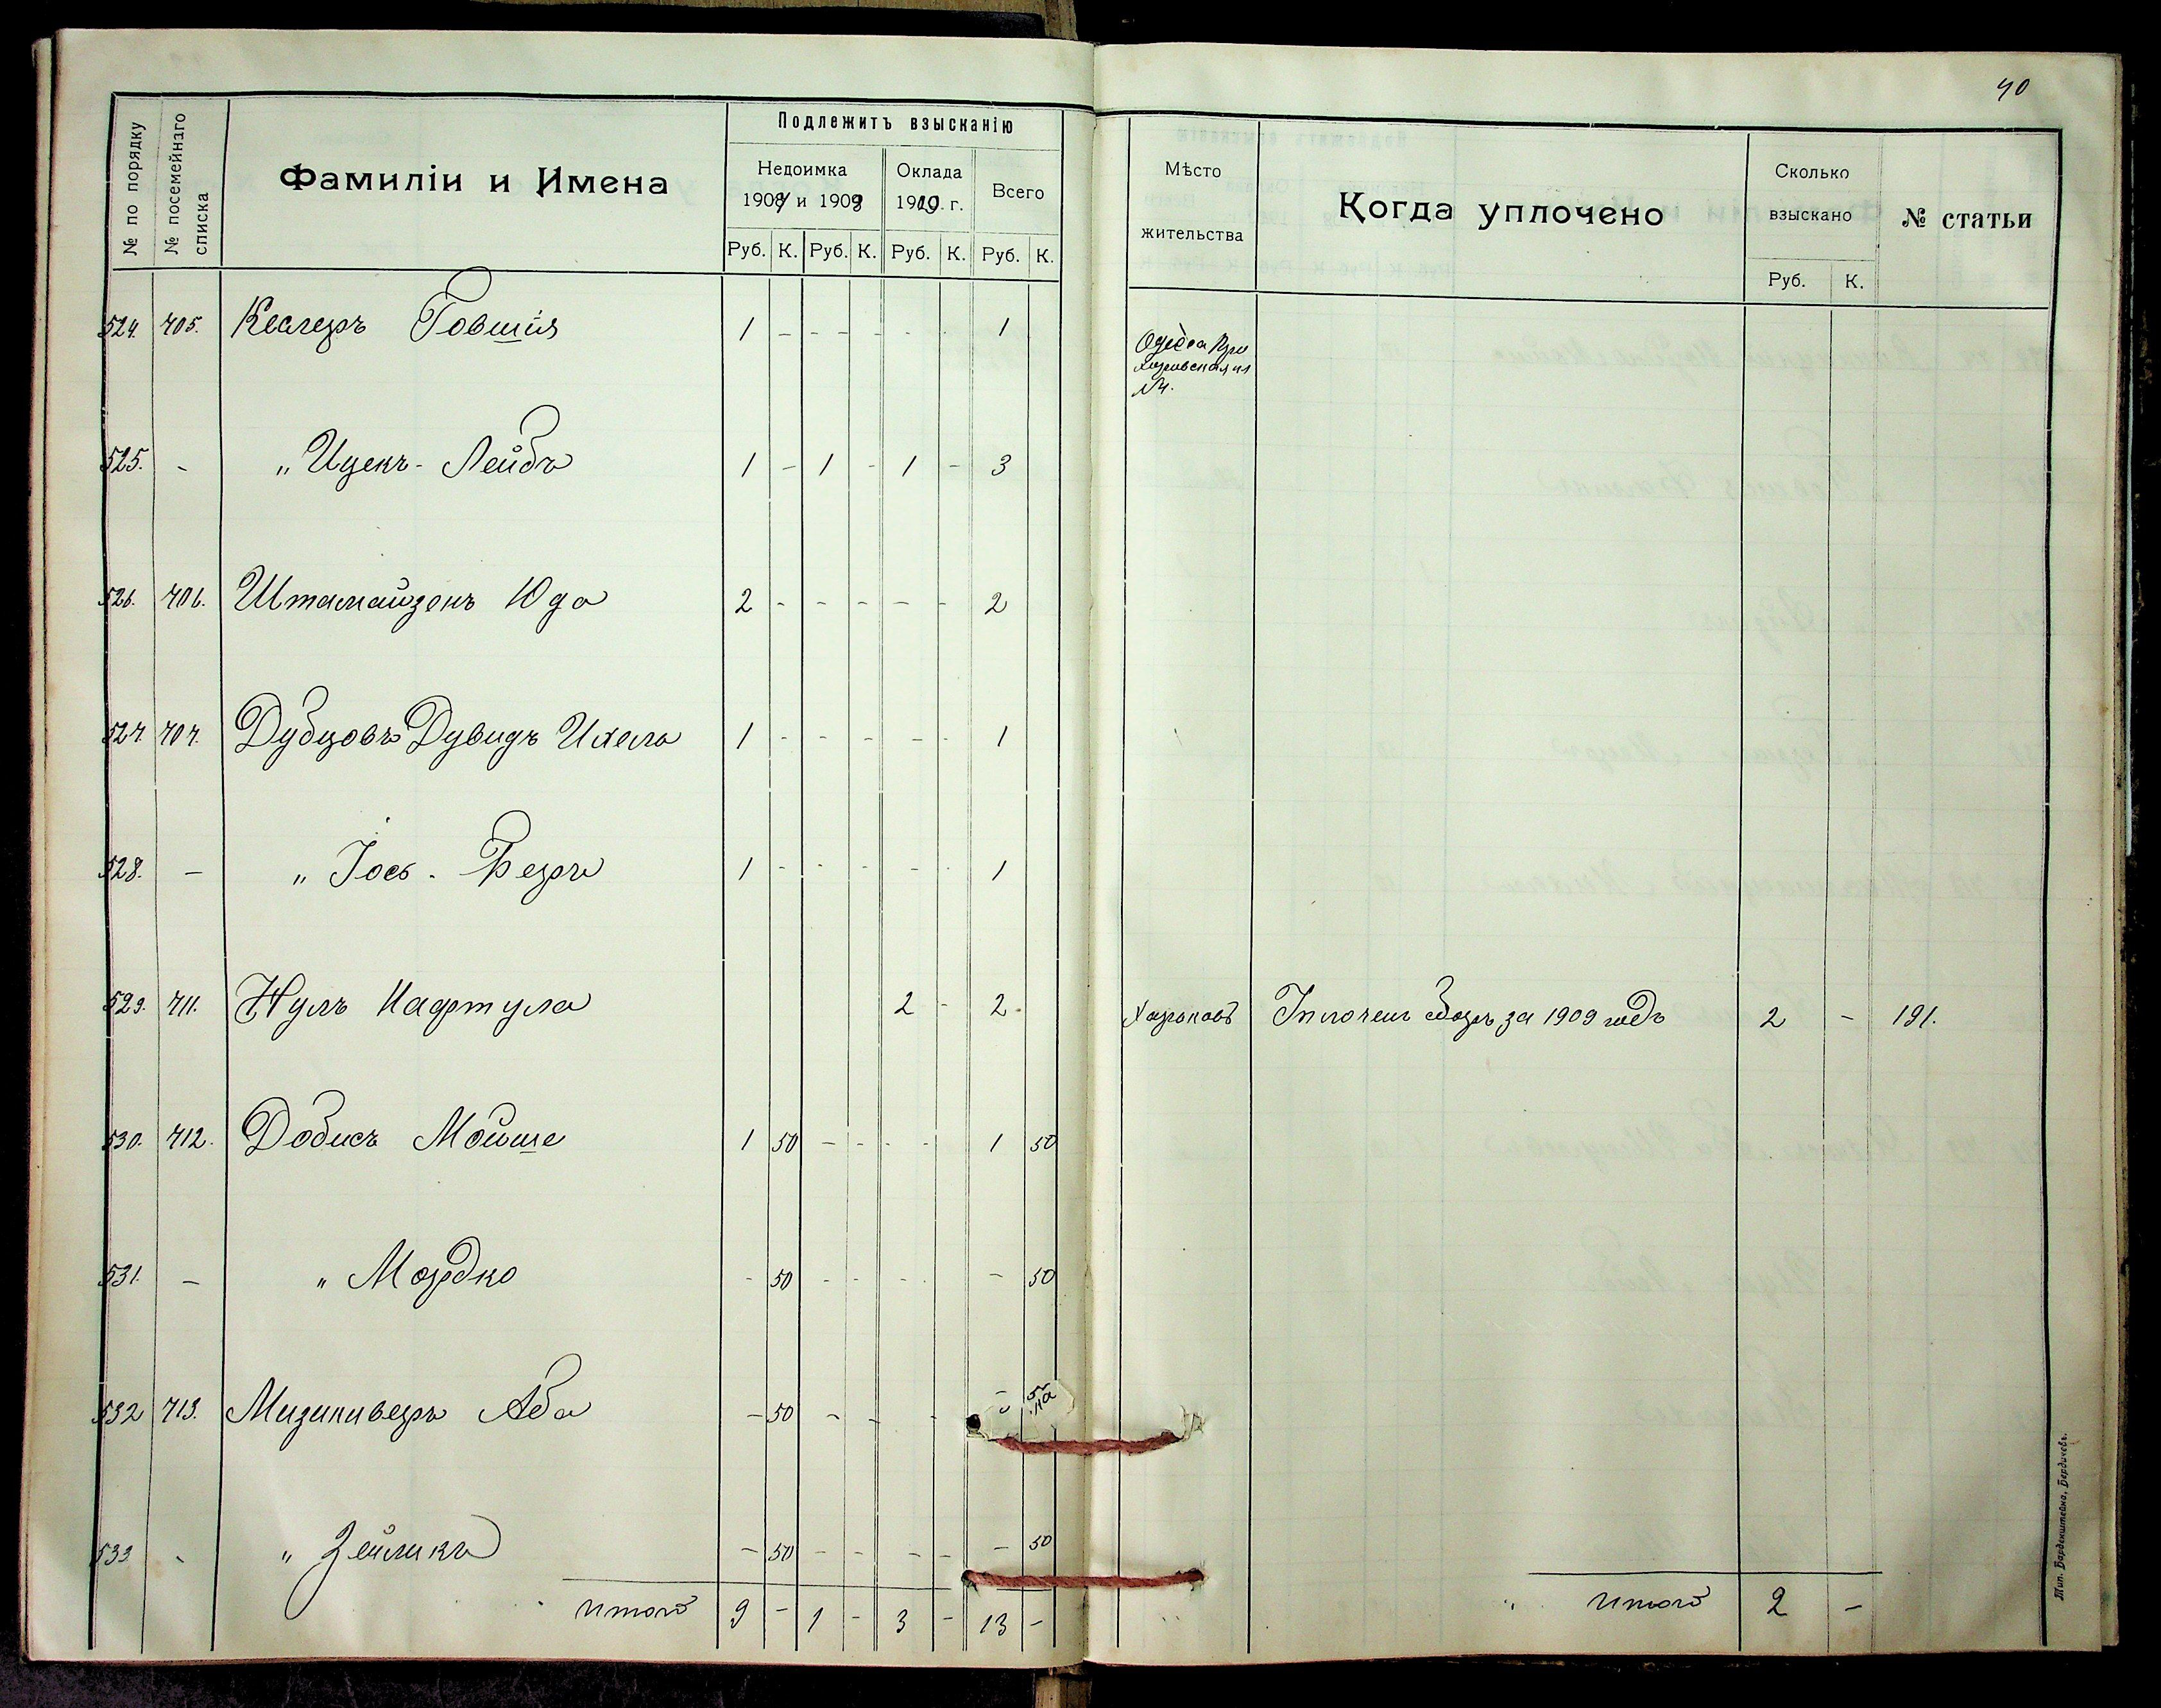 40
№ по порядку
№ посемейнаго списка
Фамиліи и Имена
Подлежитъ взысканію
Недоимка
1907 и 1908
Оклада
1909 г.
Всего
Руб. К. Руб. К. Руб. К. Руб. К.
Мѣсто
жительства
Когда уплочено
Сколько
взыскано
Руб. К.
№ статьи
524. 705. Келлеръ Говшія 1 - - - - - 1
Одесса
№4.
525. - " Ицекъ-Лейбъ 1 - 1 - 1 - 3
526. 706. Штамайзенъ Юда 2 - - - - - 2
527. 707. Дубцовъ Дувидъ Ихель 1 - - - - - 1
528. - " Іось-Беръ 1 - - - - - 1
529. 711. Нулъ Нафтула 2 - 2. Харьковъ Уплочен сборъ за 1909 годъ 2 - 191.
530. 712. Добисъ Мойше 1 50 - - - - 1 50
531. - " Мордко - 50 - - - - - 50
532 713. Мизикиверъ Аба - 50 - - -
533 - " Зейликъ - 50 - - - - - 50
Итого 9 - 1 - 3 - 13 -
" Итого 2 -
Тип. Барденштейна, Бердичевъ.